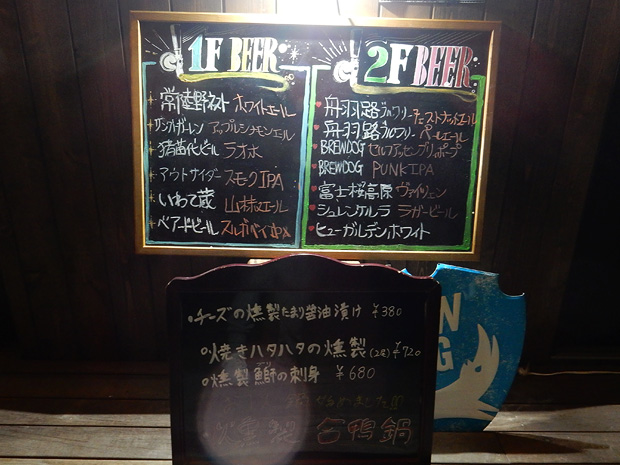 1F BEER
常陸野ネスト ホワイトエール
サンクトガーレン アップルシナモンエール
猪苗代ビール ラオホ
アウトサイダー スモークIPA
いわて蔵 山椒エール
ベアードビール スルガベイIPA
2F BEER
舟羽路ブルワリー チェストナットエール
舟羽路ブルワリー ペールエール
BREWDOG セルフアッセンブリィポープ
BREWDOG PUNK IPA
富士桜高原 ヴァイツェン
シュレンケルラ ラガービール
ヒューガルデンホワイト
・チーズの燻製たまり醤油漬け ¥380
・焼きハタハタの燻製(2尾) ¥720
・燻製鰤の刺身 ¥680
燻製 合鴨鍋